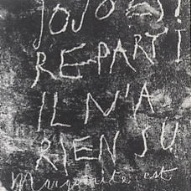 JOJO EST
REPARTI
IL N'A
RIEN SU
est